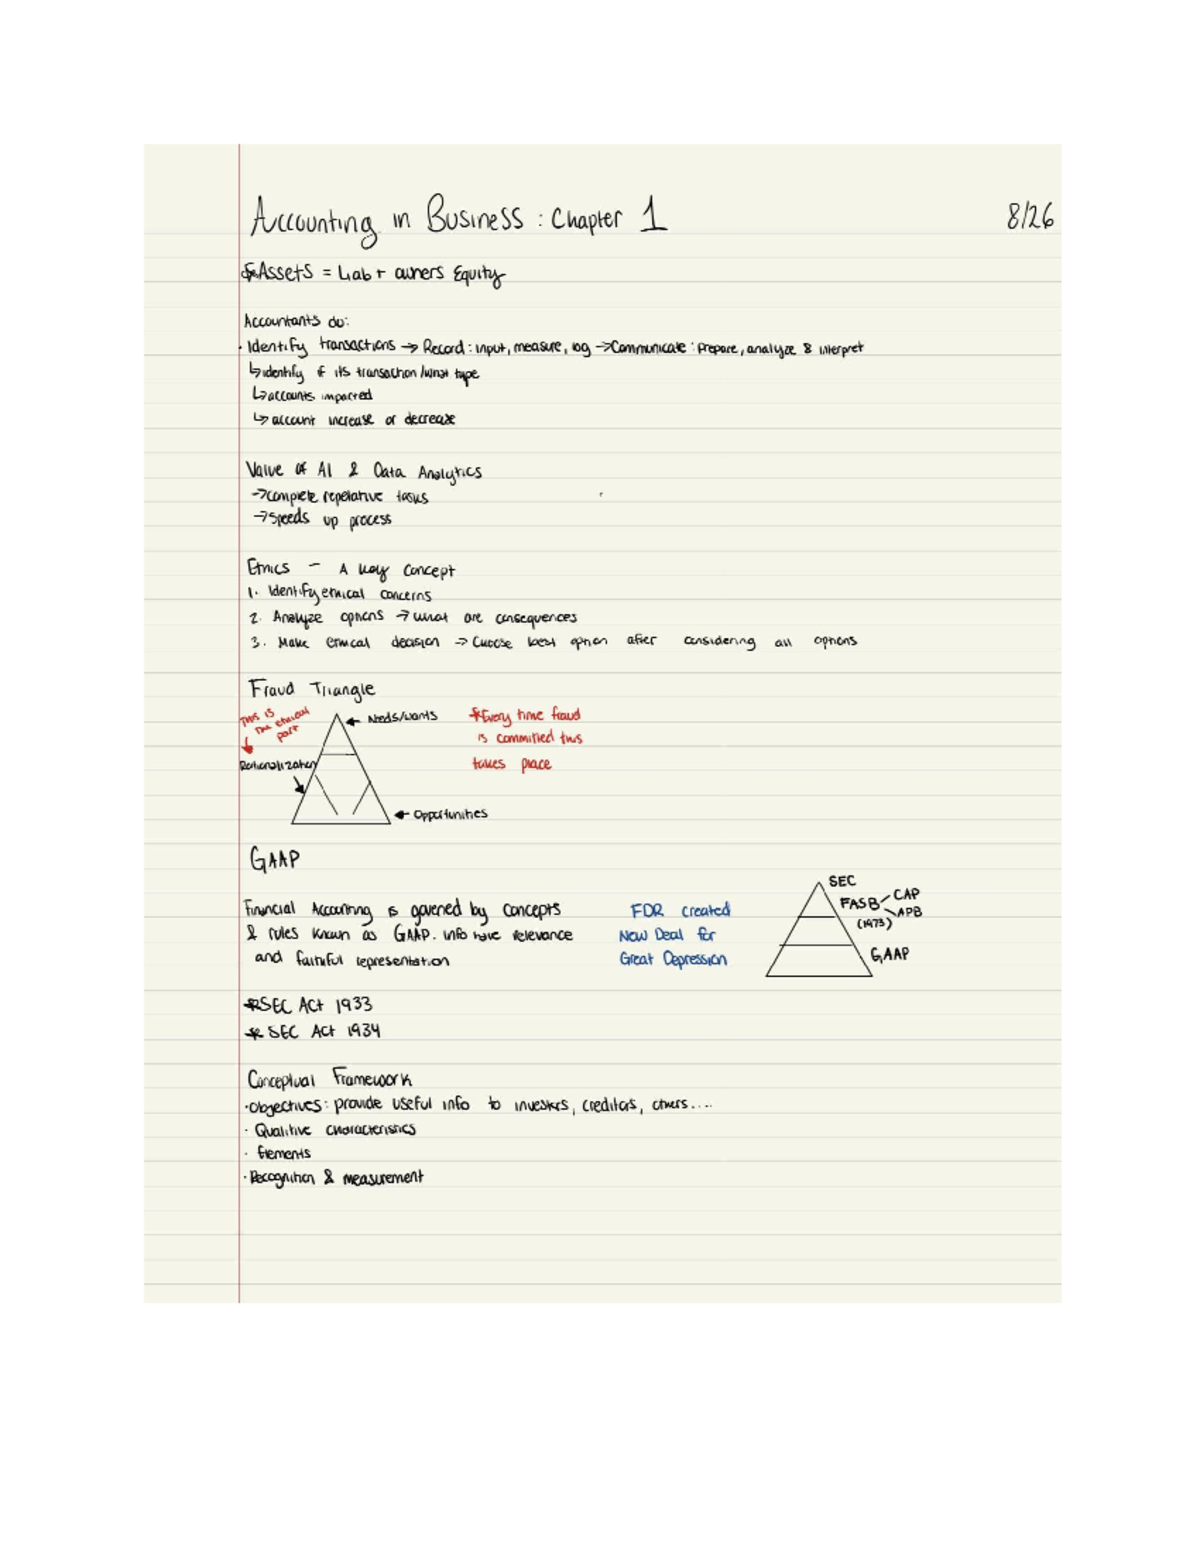 Accounting in Business : Chapter 1
8/26
*Assets = Liab + owners Equity
Accountants do:
· Identify transactions → Record: input, measure, log → Communicate: prepare, analyze & interpret
↳ identify if its transaction/what type
↳ accounts impacted
↳ account increase or decrease
Value of AI & Data Analytics
→ complete repetative tasks
→ Speeds up process
Ethics - A Key Concept
1. Identify ethical concerns
2. Analyze options → what are consequences
3. Make ethical decision → Choose best option after considering all options
Fraud Triangle
This is
the ethical
part
Needs/wants
*Every time fraud
is committed this
takes place
Rationalization
Opportunities
GAAP
SEC
FASB
CAP
APB
(1973)
GAAP
Financial Accounting is governed by concepts
& rules known as GAAP. info have relevance
and faithful representation
FDR created
New Deal for
Great Depression
*SEC Act 1933
* SEC Act 1934
Conceptual Framework
· Objectives: provide useful info to investors, creditors, others....
· Qualitive characteristics
· Elements
· Recognition & measurement